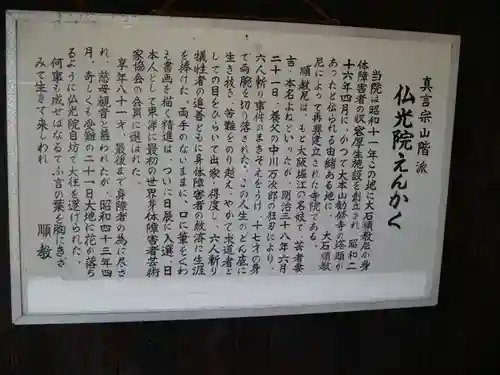 真言宗山階派
仏光院えんかく
当院は昭和十一年この地に大石順教尼が身
体障害者の収容厚生施設を創立され、昭和二
十六年四月に、かつて大本山勧修寺の塔頭が
あったと伝られる由緒ある地に、大石順教
尼によって再興建立された寺院である。
順教尼は、もと大阪堀江の名妓で、芸者妻
吉、本名よねといったが、明治三十八年六月
二十一日、養父の中川万次郎の狂刃により、
六人斬り事件のまきぞえをうけ、十七才の身
で両腕を切り落された。この人生のどん底に
生き抜き、苦難をのり越え、やがて求道者と
しての目をひらいて出家、得度し、六人斬り
犠牲者の追善とともに身体障害者の救済に生涯
を捧げた。両手のないままに、口に筆をくわ
え書画を描く精進は、ついに日展に入選、日
本人として東洋に最初の世界身体障害者芸術
家協会の会員に選ばれた。
享年八十一才、最後まで身障者の為に尽さ
れ、慈母観音と慕われたが、昭和四十三年四
月、奇しくも受難の二十一日大地に花が落ち
るように仏光院自坊で大往を遂げられた。
何事も成せばなるてふ言の葉を胸にきざ
みて生きて来しわれ
順教